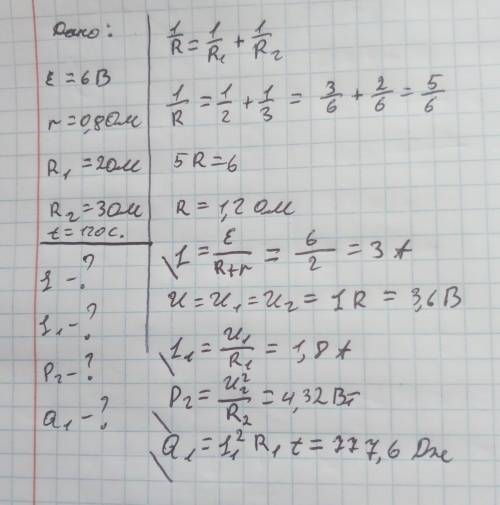 Дано:
ε = 6В
r = 0,8 Ом
R₁ = 2 Ом
R₂ = 3 Ом
t = 120 с.
I - ?
I₁ - ?
P₂ - ?
Q₁ - ?
1/R = 1/R₁ + 1/R₂
1/R = 1/2 + 1/3 = 3/6 + 2/6 = 5/6
5R = 6
R = 1,2 Ом
I = ε/(R+r) = 6/2 = 3 А
U = U₁ = U₂ = IR = 3,6 В
I₁ = U₁/R₁ = 1,8 А
P₂ = U₂²/R₂ = 4,32 Вт
Q₁ = I₁² R₁ t = 777,6 Дж